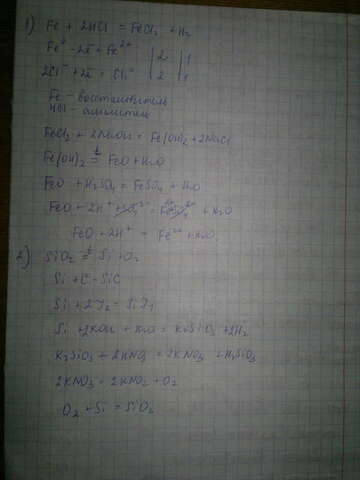 1) Fe + 2HCl = FeCl2 + H2
Fe⁰ - 2e = Fe²⁺ | 2 | 1
2Cl⁻ + 2e = Cl2⁻ | 2 | 1
Fe - восстановитель
HCl - окислитель
FeCl2 + 2NaOH = Fe(OH)2 + 2NaCl
Fe(OH)2 =t FeO + H2O
FeO + H2SO4 = FeSO4 + H2O
FeO + 2H⁺ + SO4²⁻ = Fe²⁺ SO4²⁻ + H2O
FeO + 2H⁺ = Fe²⁺ + H2O
2) SiO2 =t Si + O2
Si + C = SiC
Si + 2I2 = SiI4
Si + 2KOH + H2O = K2SiO3 + 2H2
K2SiO3 + 2HNO3 = 2KNO3 + H2SiO3
2KNO3 = 2KNO2 + O2
O2 + Si = SiO2